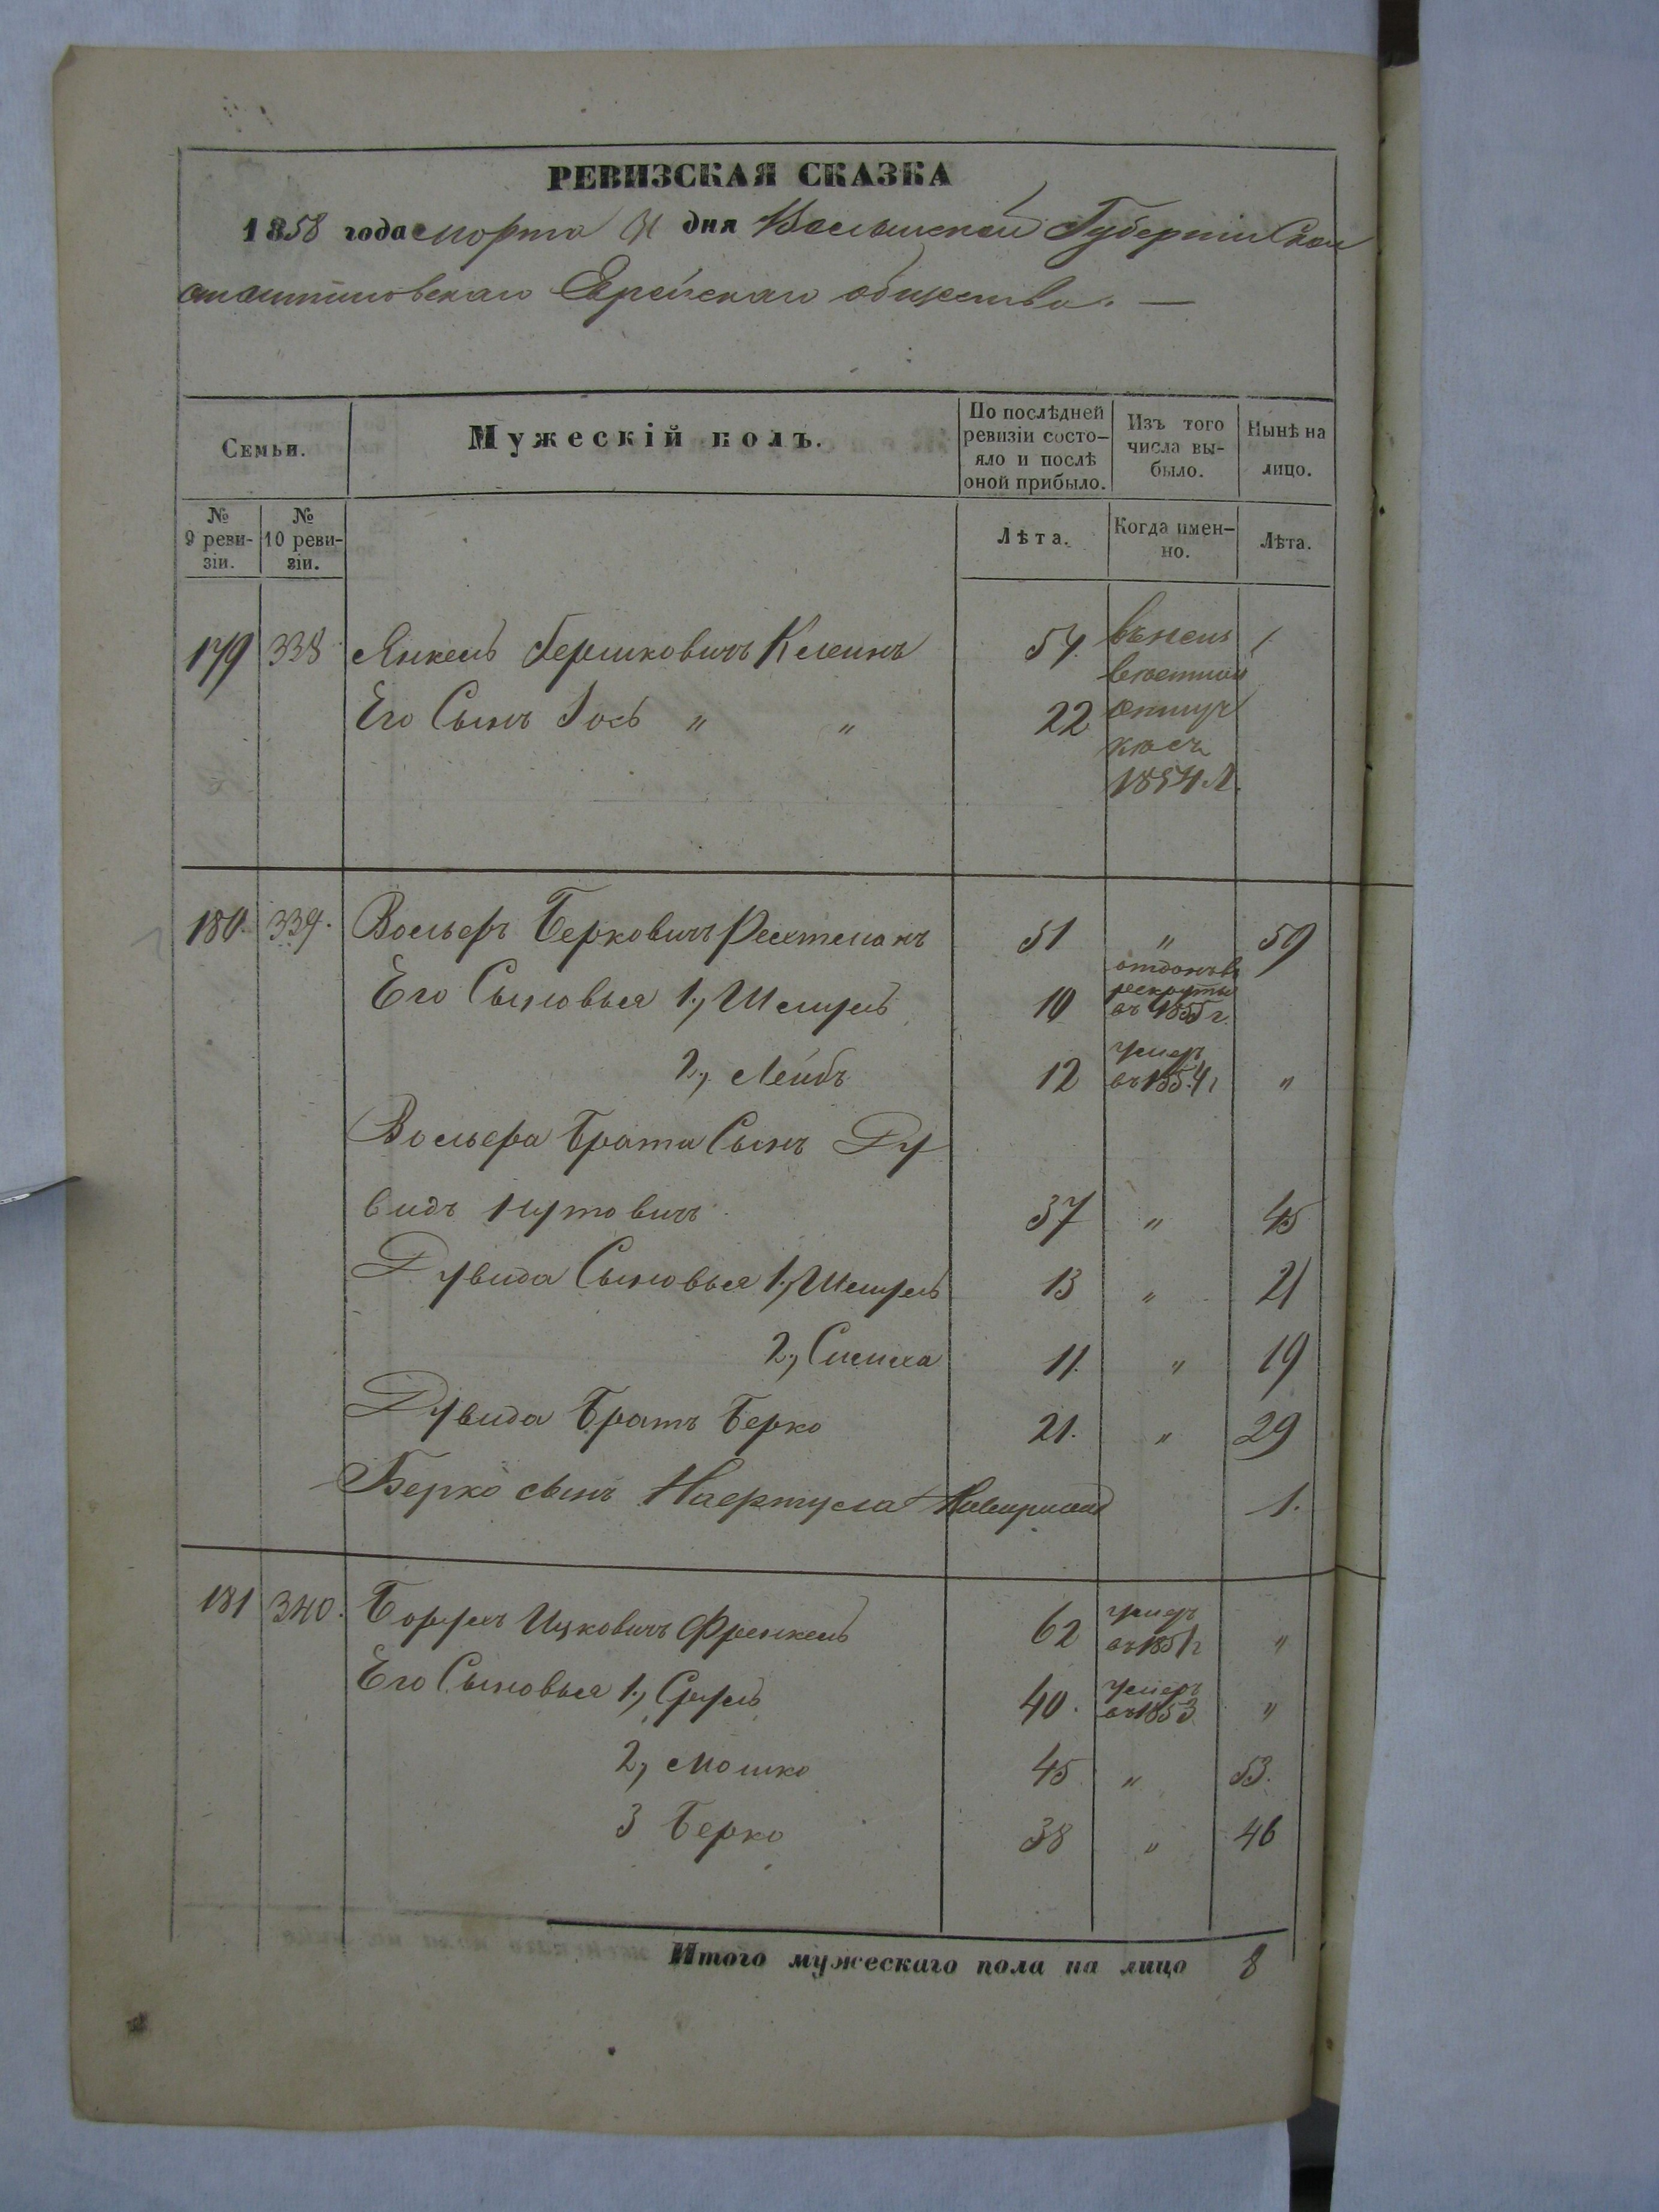 РЕВИЗСКАЯ СКАЗКА
1858 года Марта 31 дня Волынской Губерніи Кон
стантиновскаго Еврейскаго общества. —
Семьи.
Мужескій полъ.
По послѣдней ревизіи состо-яло и послѣ оной прибыло.
Изъ того числа вы-было.
Нынѣ на лицо.
№ 9 реви-зіи.
№ 10 реви-зіи.
Лѣта.
Когда имен-но.
Лѣта.
179 338 Янкель Гершковичъ Клеинъ 57
Его Сынъ Іось " " 22
отлуч
1854.
180. 339. Вольфъ Берковичъ Рехтманъ 51 " 59
Его Сыновья 1, Шмуль 10 отданъ въ рекруты въ 1855 г.
2, Лейбъ 12 умеръ въ 1854 г "
Вольфа Брата Сынъ Ду
видъ 37 " 45
Дувида Сыновья 1, Шмуль 13 " 21
2, Симха 11. " 19
Дувида Братъ Берко 21. " 29
Берко сынъ 1.
181 340. Борухъ Ицковичъ Френкель 62 умеръ въ 1851 г "
Его Сыновья 1, Сруль 40. умеръ въ 1853 "
2, Мошко 45 " 53.
3 Берко 38 " 46
Итого мужескаго пола на лицо 8